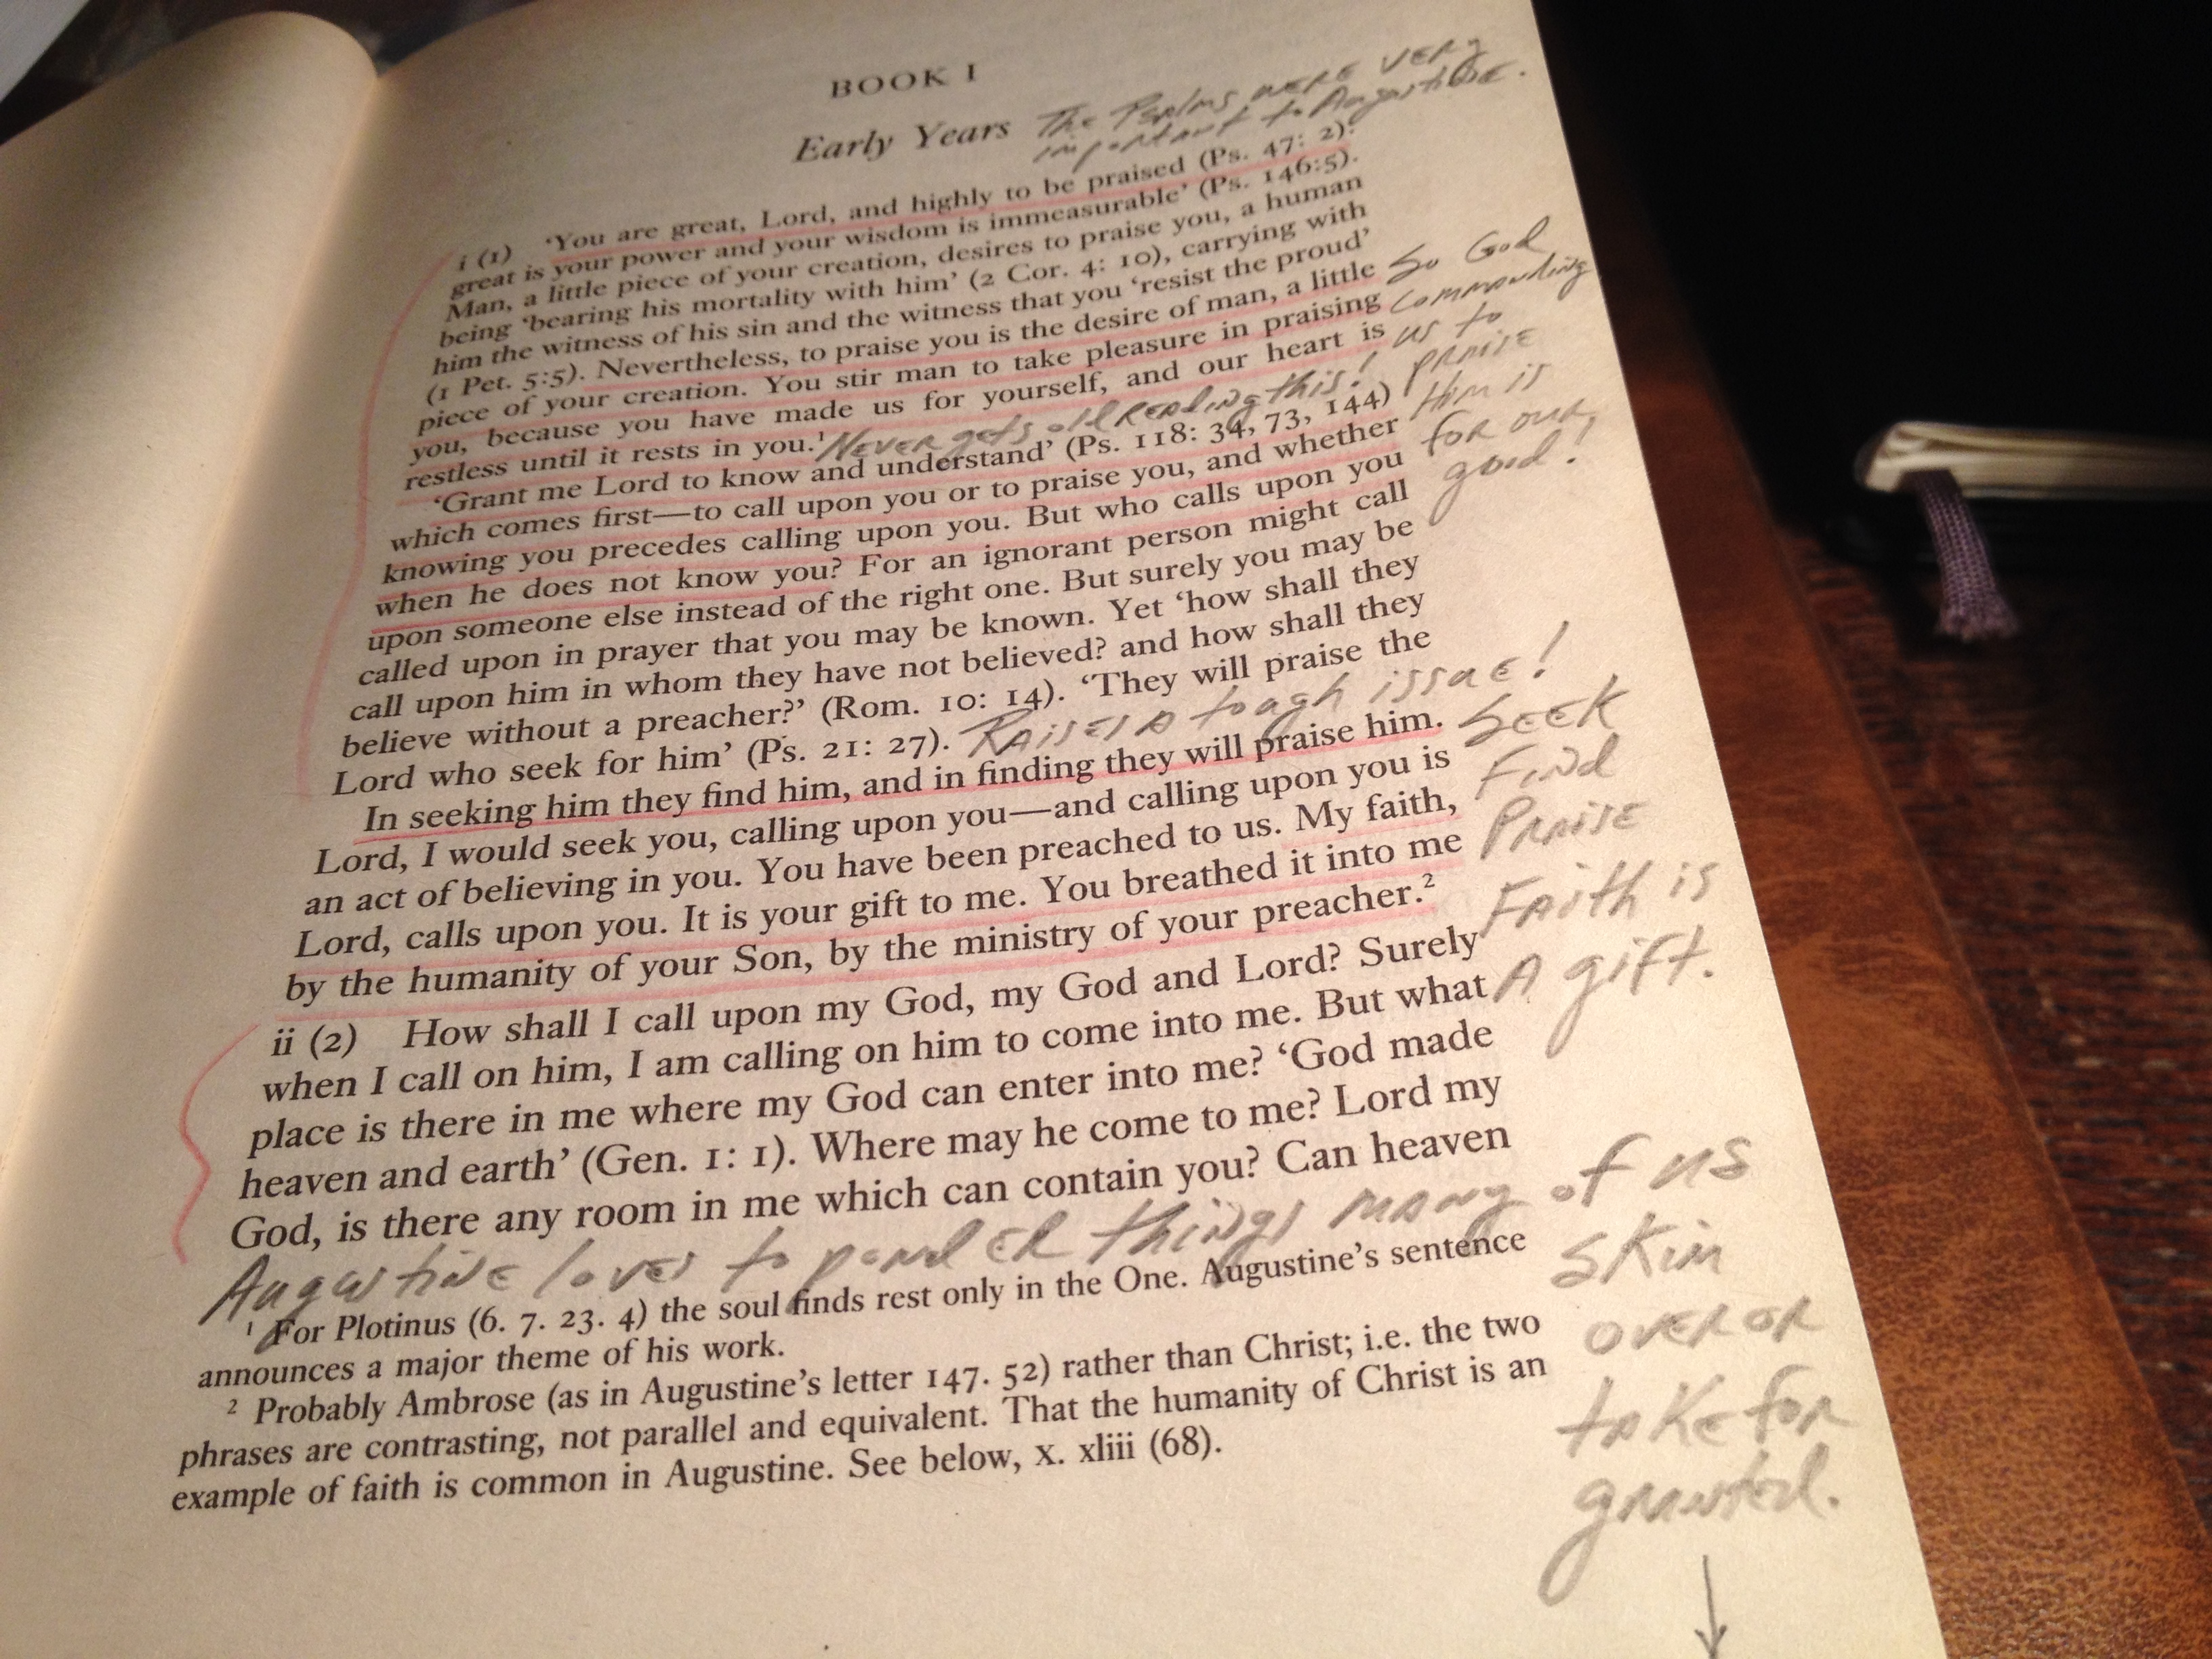 BOOK I
Early Years
The Psalms were very
important to Augustine.
i (1) ‘You are great, Lord, and highly to be praised (Ps. 47: 2):
great is your power and your wisdom is immeasurable’ (Ps. 146:5).
Man, a little piece of your creation, desires to praise you, a human
being ‘bearing his mortality with him’ (2 Cor. 4: 10), carrying with
him the witness of his sin and the witness that you ‘resist the proud’
(1 Pet. 5:5). Nevertheless, to praise you is the desire of man, a little
piece of your creation. You stir man to take pleasure in praising
you, because you have made us for yourself, and our heart is
restless until it rests in you.¹
Never gets old reading this!
So God
commanding
us to
praise
Him is
for our
good!
‘Grant me Lord to know and understand’ (Ps. 118: 34, 73, 144)
which comes first—to call upon you or to praise you, and whether
knowing you precedes calling upon you. But who calls upon you
when he does not know you? For an ignorant person might call
upon someone else instead of the right one. But surely you may be
called upon in prayer that you may be known. Yet ‘how shall they
call upon him in whom they have not believed? and how shall they
believe without a preacher?’ (Rom. 10: 14). ‘They will praise the
Lord who seek for him’ (Ps. 21: 27).
Raises a tough issue!
In seeking him they find him, and in finding they will praise him.
Lord, I would seek you, calling upon you—and calling upon you is
an act of believing in you. You have been preached to us. My faith,
Lord, calls upon you. It is your gift to me. You breathed it into me
by the humanity of your Son, by the ministry of your preacher.²
Seek
Find
Praise
Faith is
A gift.
ii (2) How shall I call upon my God, my God and Lord? Surely
when I call on him, I am calling on him to come into me. But what
place is there in me where my God can enter into me? ‘God made
heaven and earth’ (Gen. 1: 1). Where may he come to me? Lord my
God, is there any room in me which can contain you? Can heaven
Augustine loves to ponder things many of us
skim
over or
take for
granted.
¹ For Plotinus (6. 7. 23. 4) the soul finds rest only in the One. Augustine’s sentence
announces a major theme of his work.
² Probably Ambrose (as in Augustine’s letter 147. 52) rather than Christ; i.e. the two
phrases are contrasting, not parallel and equivalent. That the humanity of Christ is an
example of faith is common in Augustine. See below, x. xliii (68).